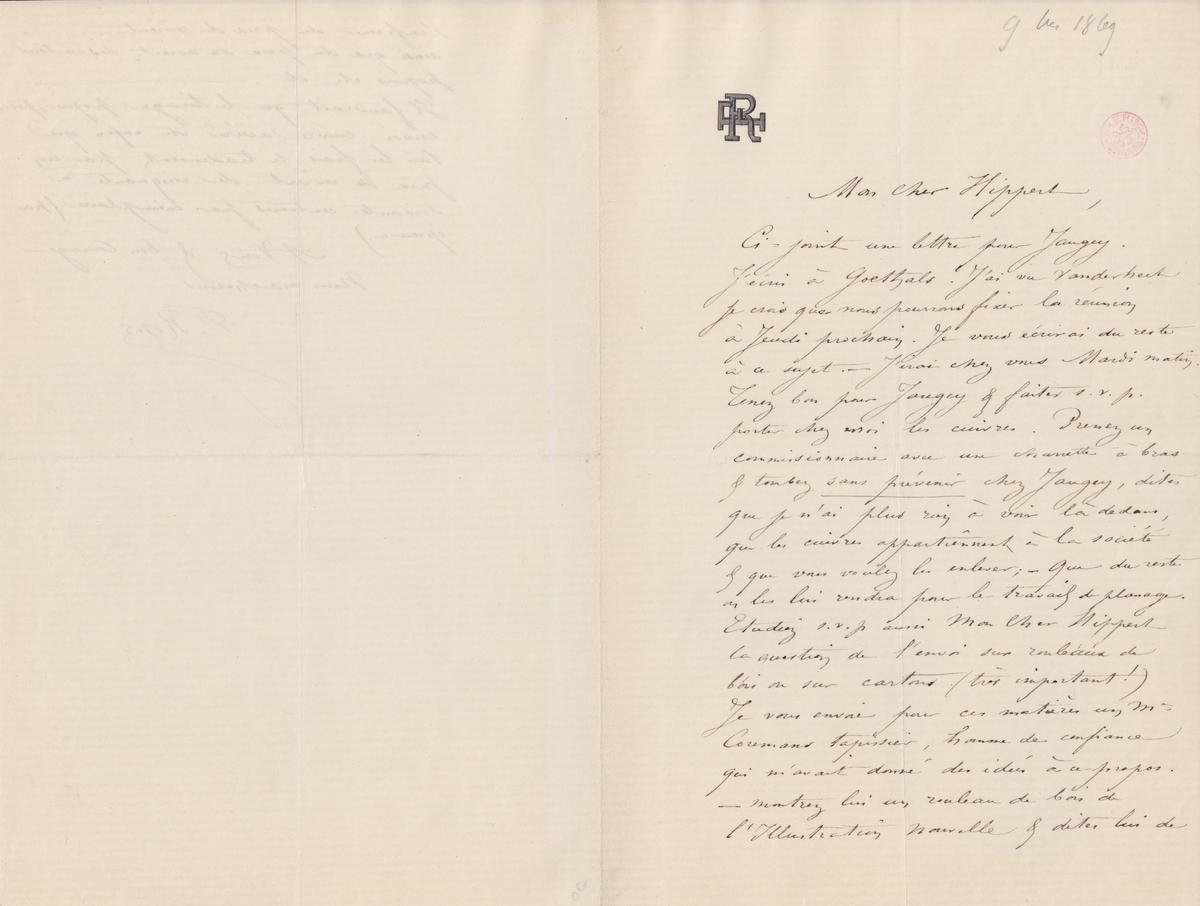 9 bre 1869
Mon cher Hippert,
Ci-joint une lettre pour Jaugey.
J'écris à Goethals. J'ai vu Vanderhecht
Je crois que nous pourrons fixer la réunion
à Jeudi prochain. Je vous écrirai du reste
à ce sujet. — J'irai chez vous Mardi matin.
Tenez bon pour Jaugey & faites s.v.p.
porter chez moi les cuivres. Prenez un
commissionnaire avec une charrette à bras
& tombez sans prévenir chez Jaugey, dites
que je n'ai plus rien à voir là dedans,
que les cuivres appartiennent à la société
& que vous voulez les enlever; — Que du reste
on les lui rendra pour le travail de planage.
Etudiez s.v.p aussi Mon Cher Hippert
la question de l'envoi sur rouleaux de
bois ou sur cartons (très important!)
Je vous envoie pour ces matières un Mr
Coremans tapissier, homme de confiance
qui m'avait donné des idées à ce propos.
— montrez lui un rouleau de bois de
l'Illustration nouvelle & dites lui de